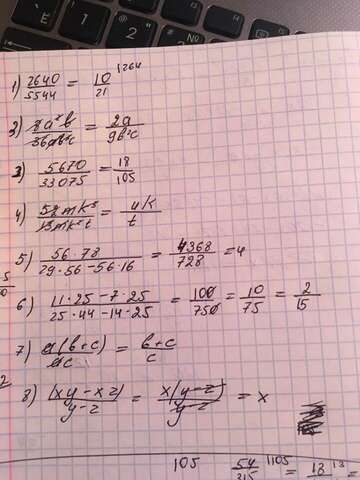 Ё 1 2 №
1) 2640/5544 = 10/21 |264
2) 8a³b/36ab³c = 2a/9b²c
3) 5670/33075 = 18/105
4) 52mk³/13mk²t = 4k/t
5) 56·78/29·56-56·16 = 4368/728 = 4
6) 11·25-7·25/25·44-14·25 = 100/750 = 10/75 = 2/15
7) a(b+c)/ac = b+c/c
8) (xy-xz)/y-z = x(y-z)/y-z = x
105 54/315 |105 18